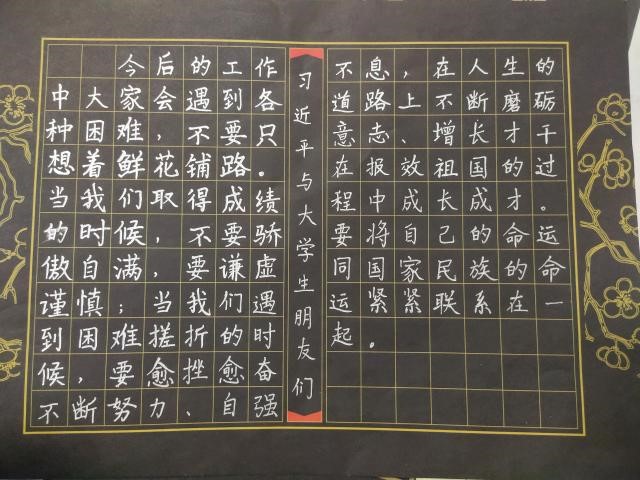 今后的工作
中大家会遇到各
种困难，不要只
想着鲜花铺路。
当我们取得成绩
的时候，不要骄
傲自满，要谦虚
谨慎；当我们遇
到困难搓折的时
候，要愈挫愈奋
不断努力、自强
习近平与大学生朋友们
不息，在人生的
道路上不断磨砺
意志、增长才干
在报效祖国的过
程中成长成才。
要将自己的命运
同国家民族的命
运紧紧联系在一
起。